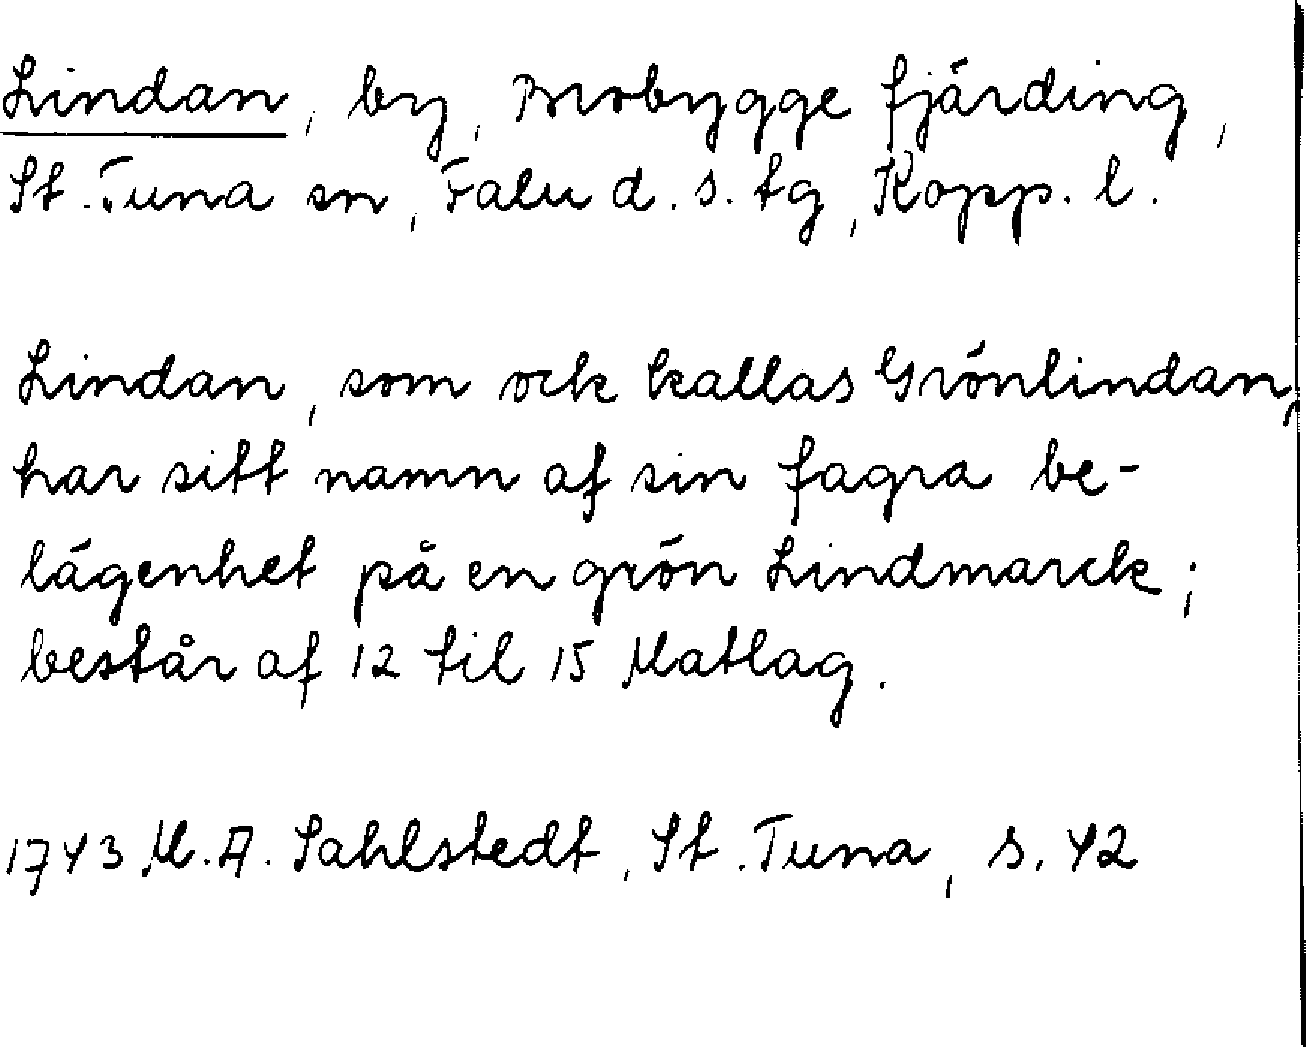 Lindan, by, Brobygge fjärding,
St. Tuna sn, Falu d.s. tg, Kopp. l.
Lindan, som ock kallas Grönlindan,
har sitt namn af sin fagra be-
lägenhet på en grön Lindmarck;
består af 12 til 15 Matlag.
1743 M.A. Sahlstedt, St. Tuna, s. 42